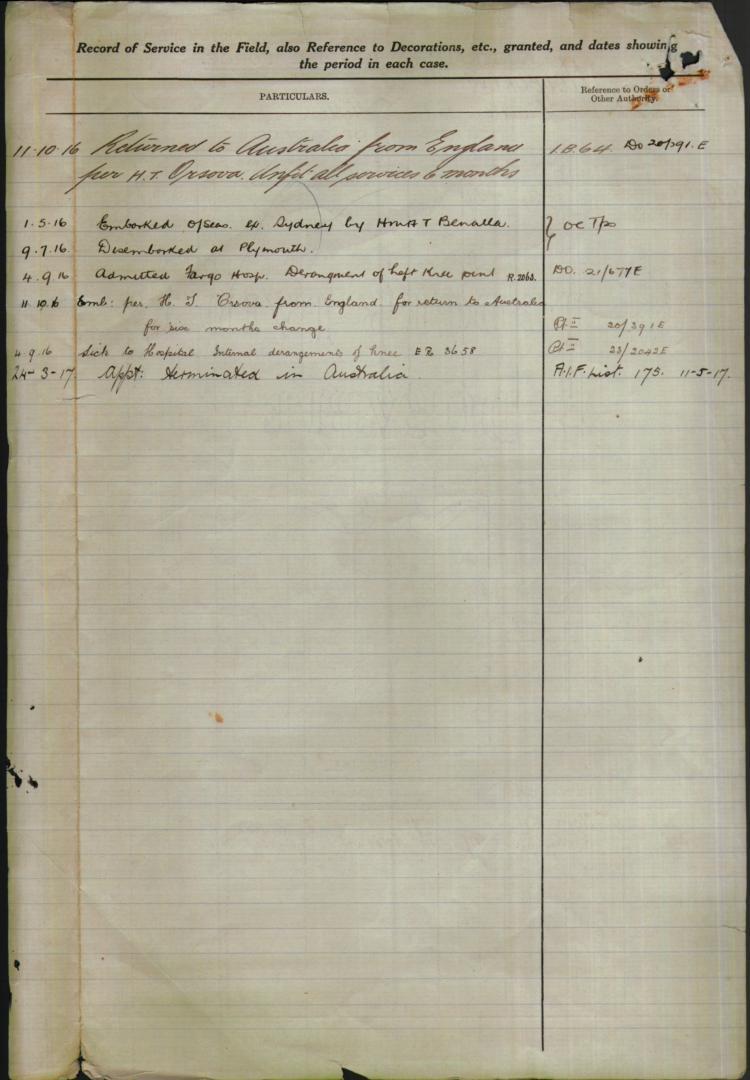 Record of Service in the Field, also Reference to Decorations, etc., granted, and dates showing
the period in each case.
PARTICULARS.
Reference to Orders or
Other Authority.
11.10.16 Returned to Australia from England 1864 DO 20/391.E
per H.T. Orsova. Unfit all services 6 months
1.5.16 Embarked o/seas. ex. Sydney by HMAT Benalla. } OC T/ps
9.7.16. Disembarked at Plymouth.
4.9.16 Admitted Fargo Hosp. Derangment of Left Knee joint R.2063. DO. 21/677E
11.10.16 Emb: per. H. T. Orsova. from England. for return to Australia
for six months change Pt II 20/391E
4.9.16 Sick to Hospital Internal derangements of knee 3658 Pt II 23/2042E
24-3-17. Appt: terminated in Australia. A.I.F. List. 175. 11-5-17.